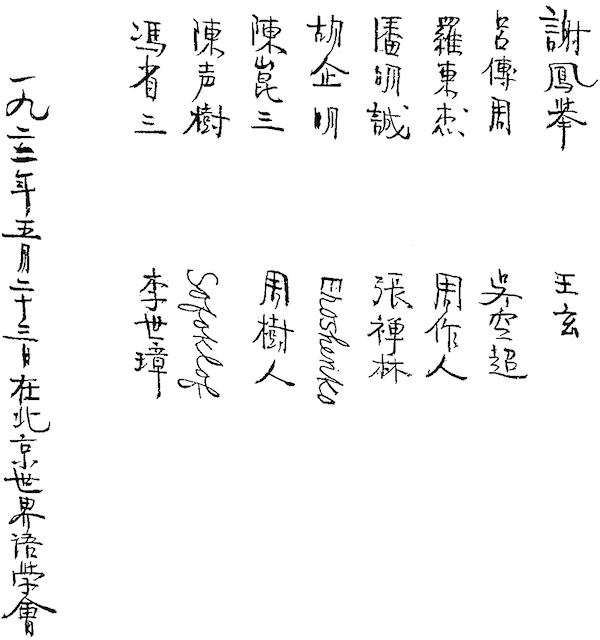 謝鳳挙
呂傳周
羅東杰
潘明誠
胡企明
陳崑三
陳声樹
馮省三
王玄
吳空超
周作人
張禪林
Eroshenko
周樹人
Sofoklof
李世璋
一九二三年五月二十三日在北京世界語學會